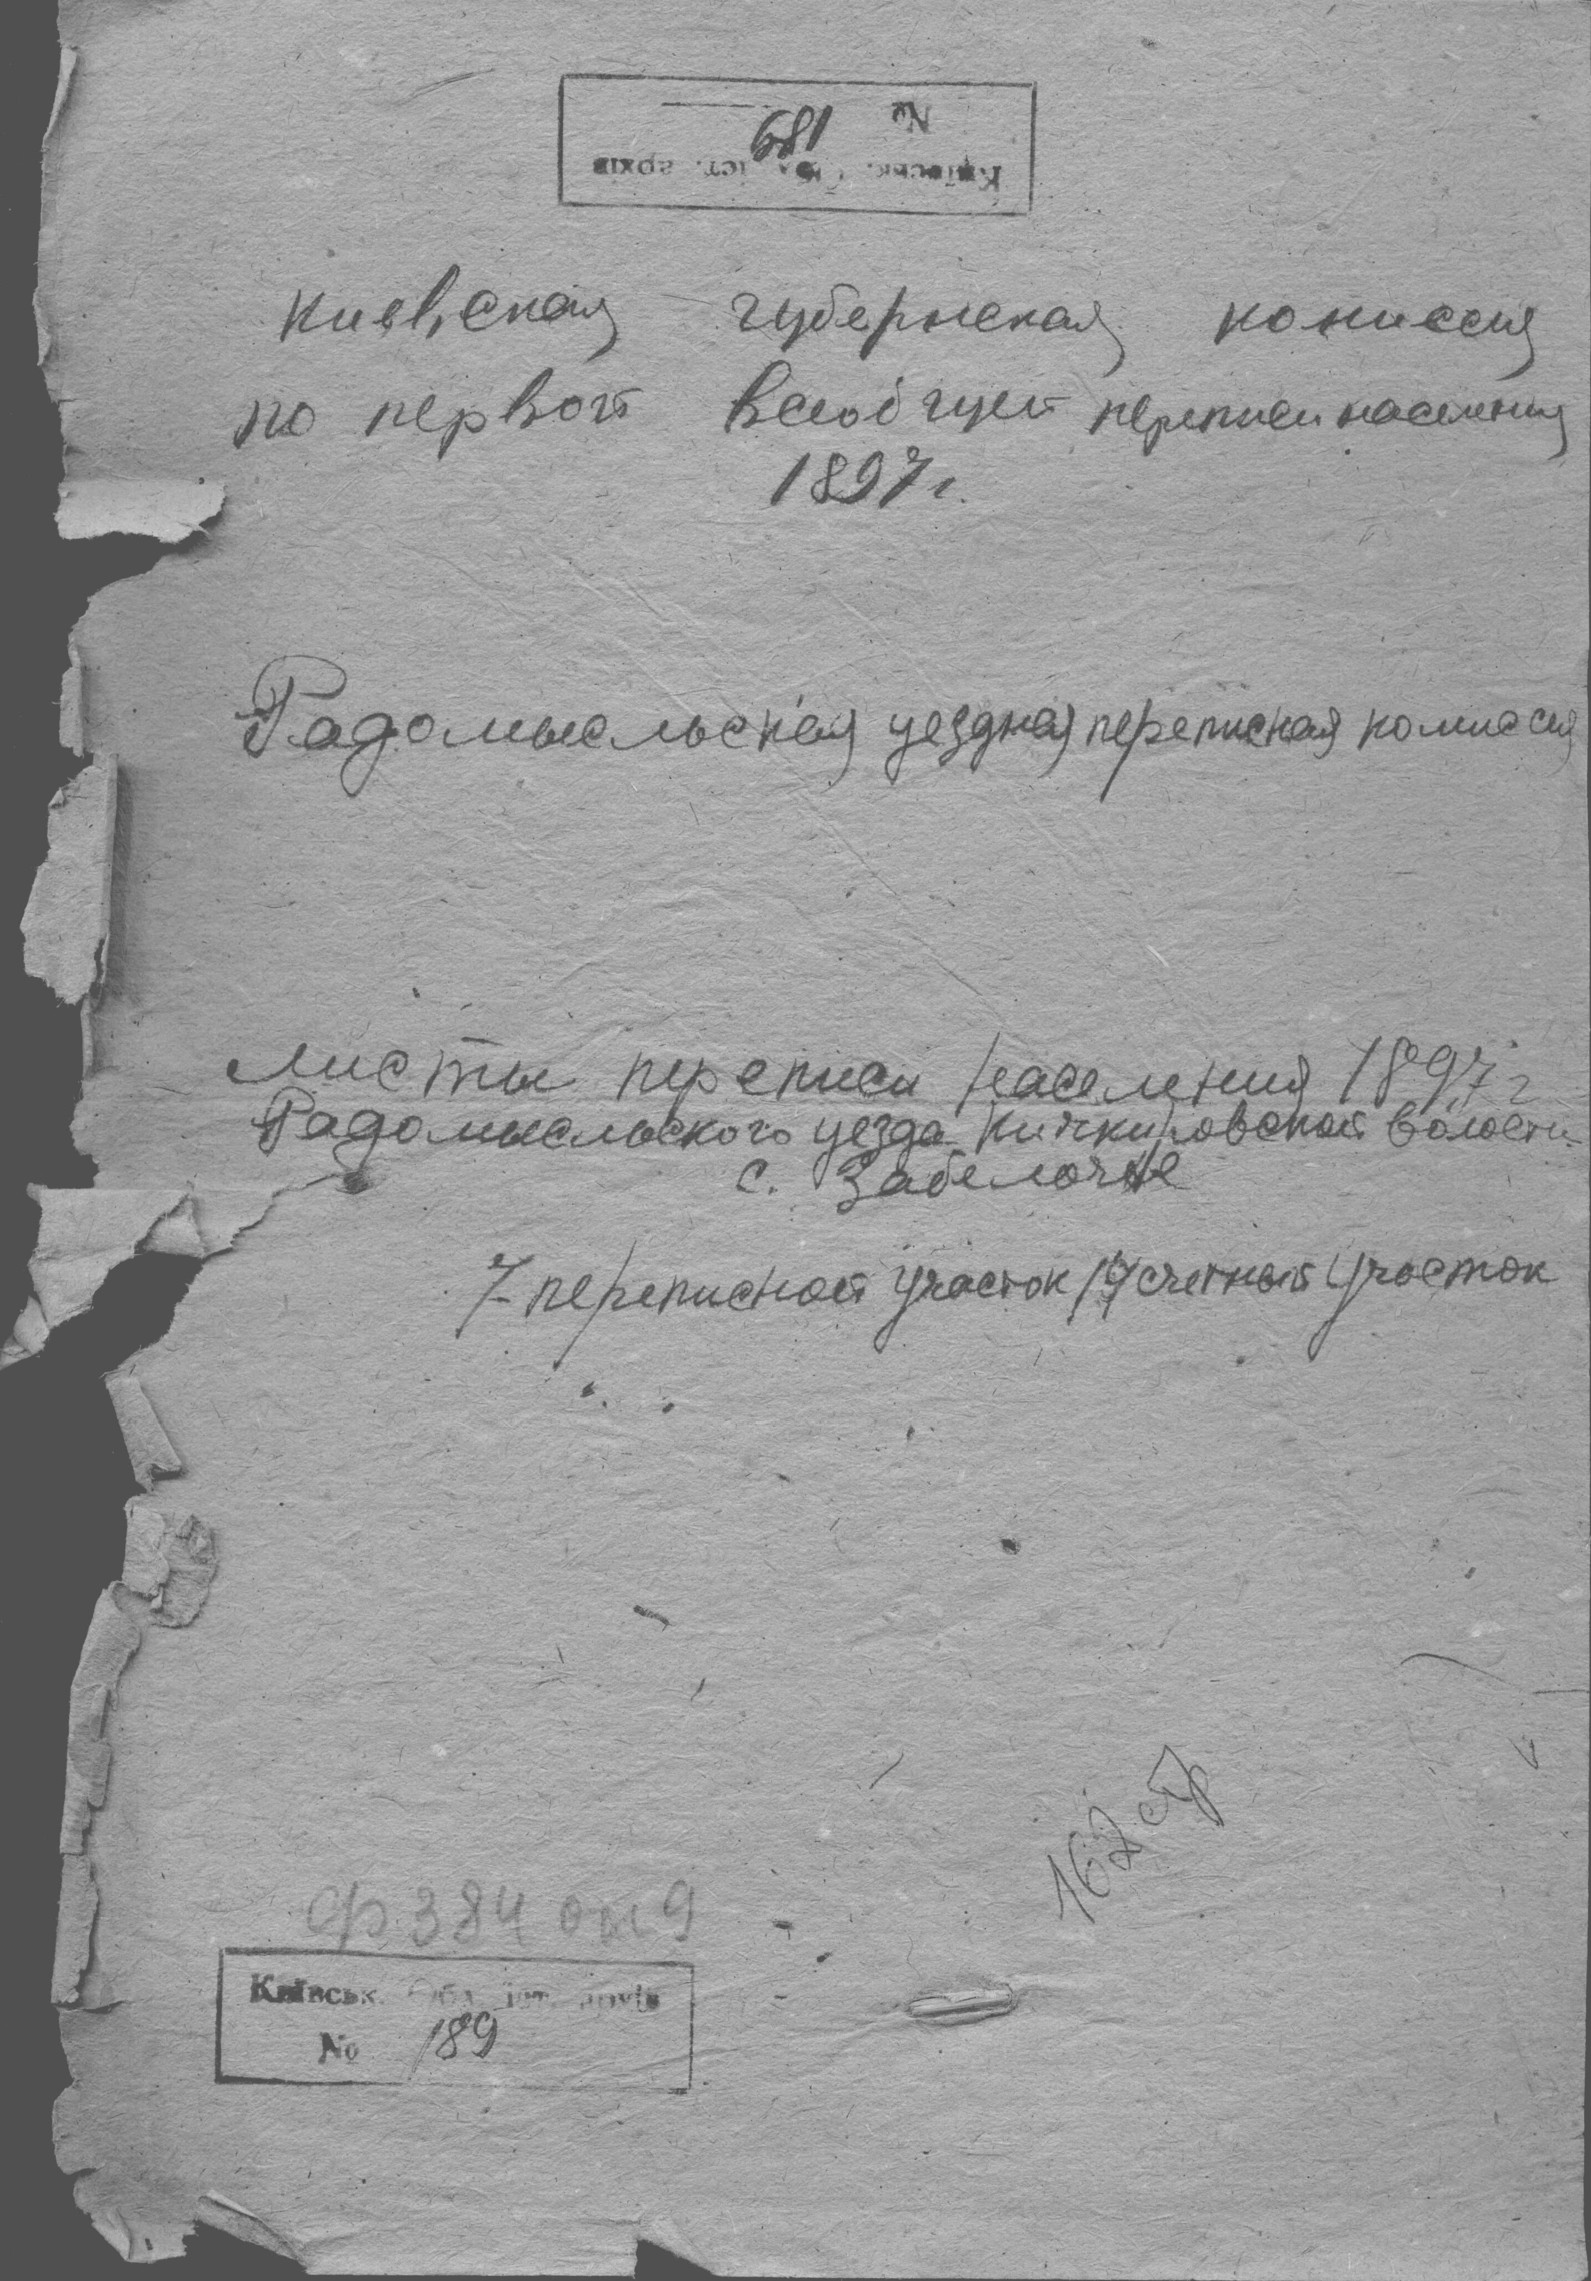 Київськ. Обл. іст. архів
№ 189
Киевская губернская комиссия
по первой всеобщей переписи населения
1897 г.
Радомысльская уездная переписная комиссия
Листы переписи населения 1897 г
Радомысльского уезда Кичкировской волости
с. Забелочье
7 переписной участок счетный участок
162 стр
ф 384 оп 9
Київськ. Обл. іст. архів
№ 189